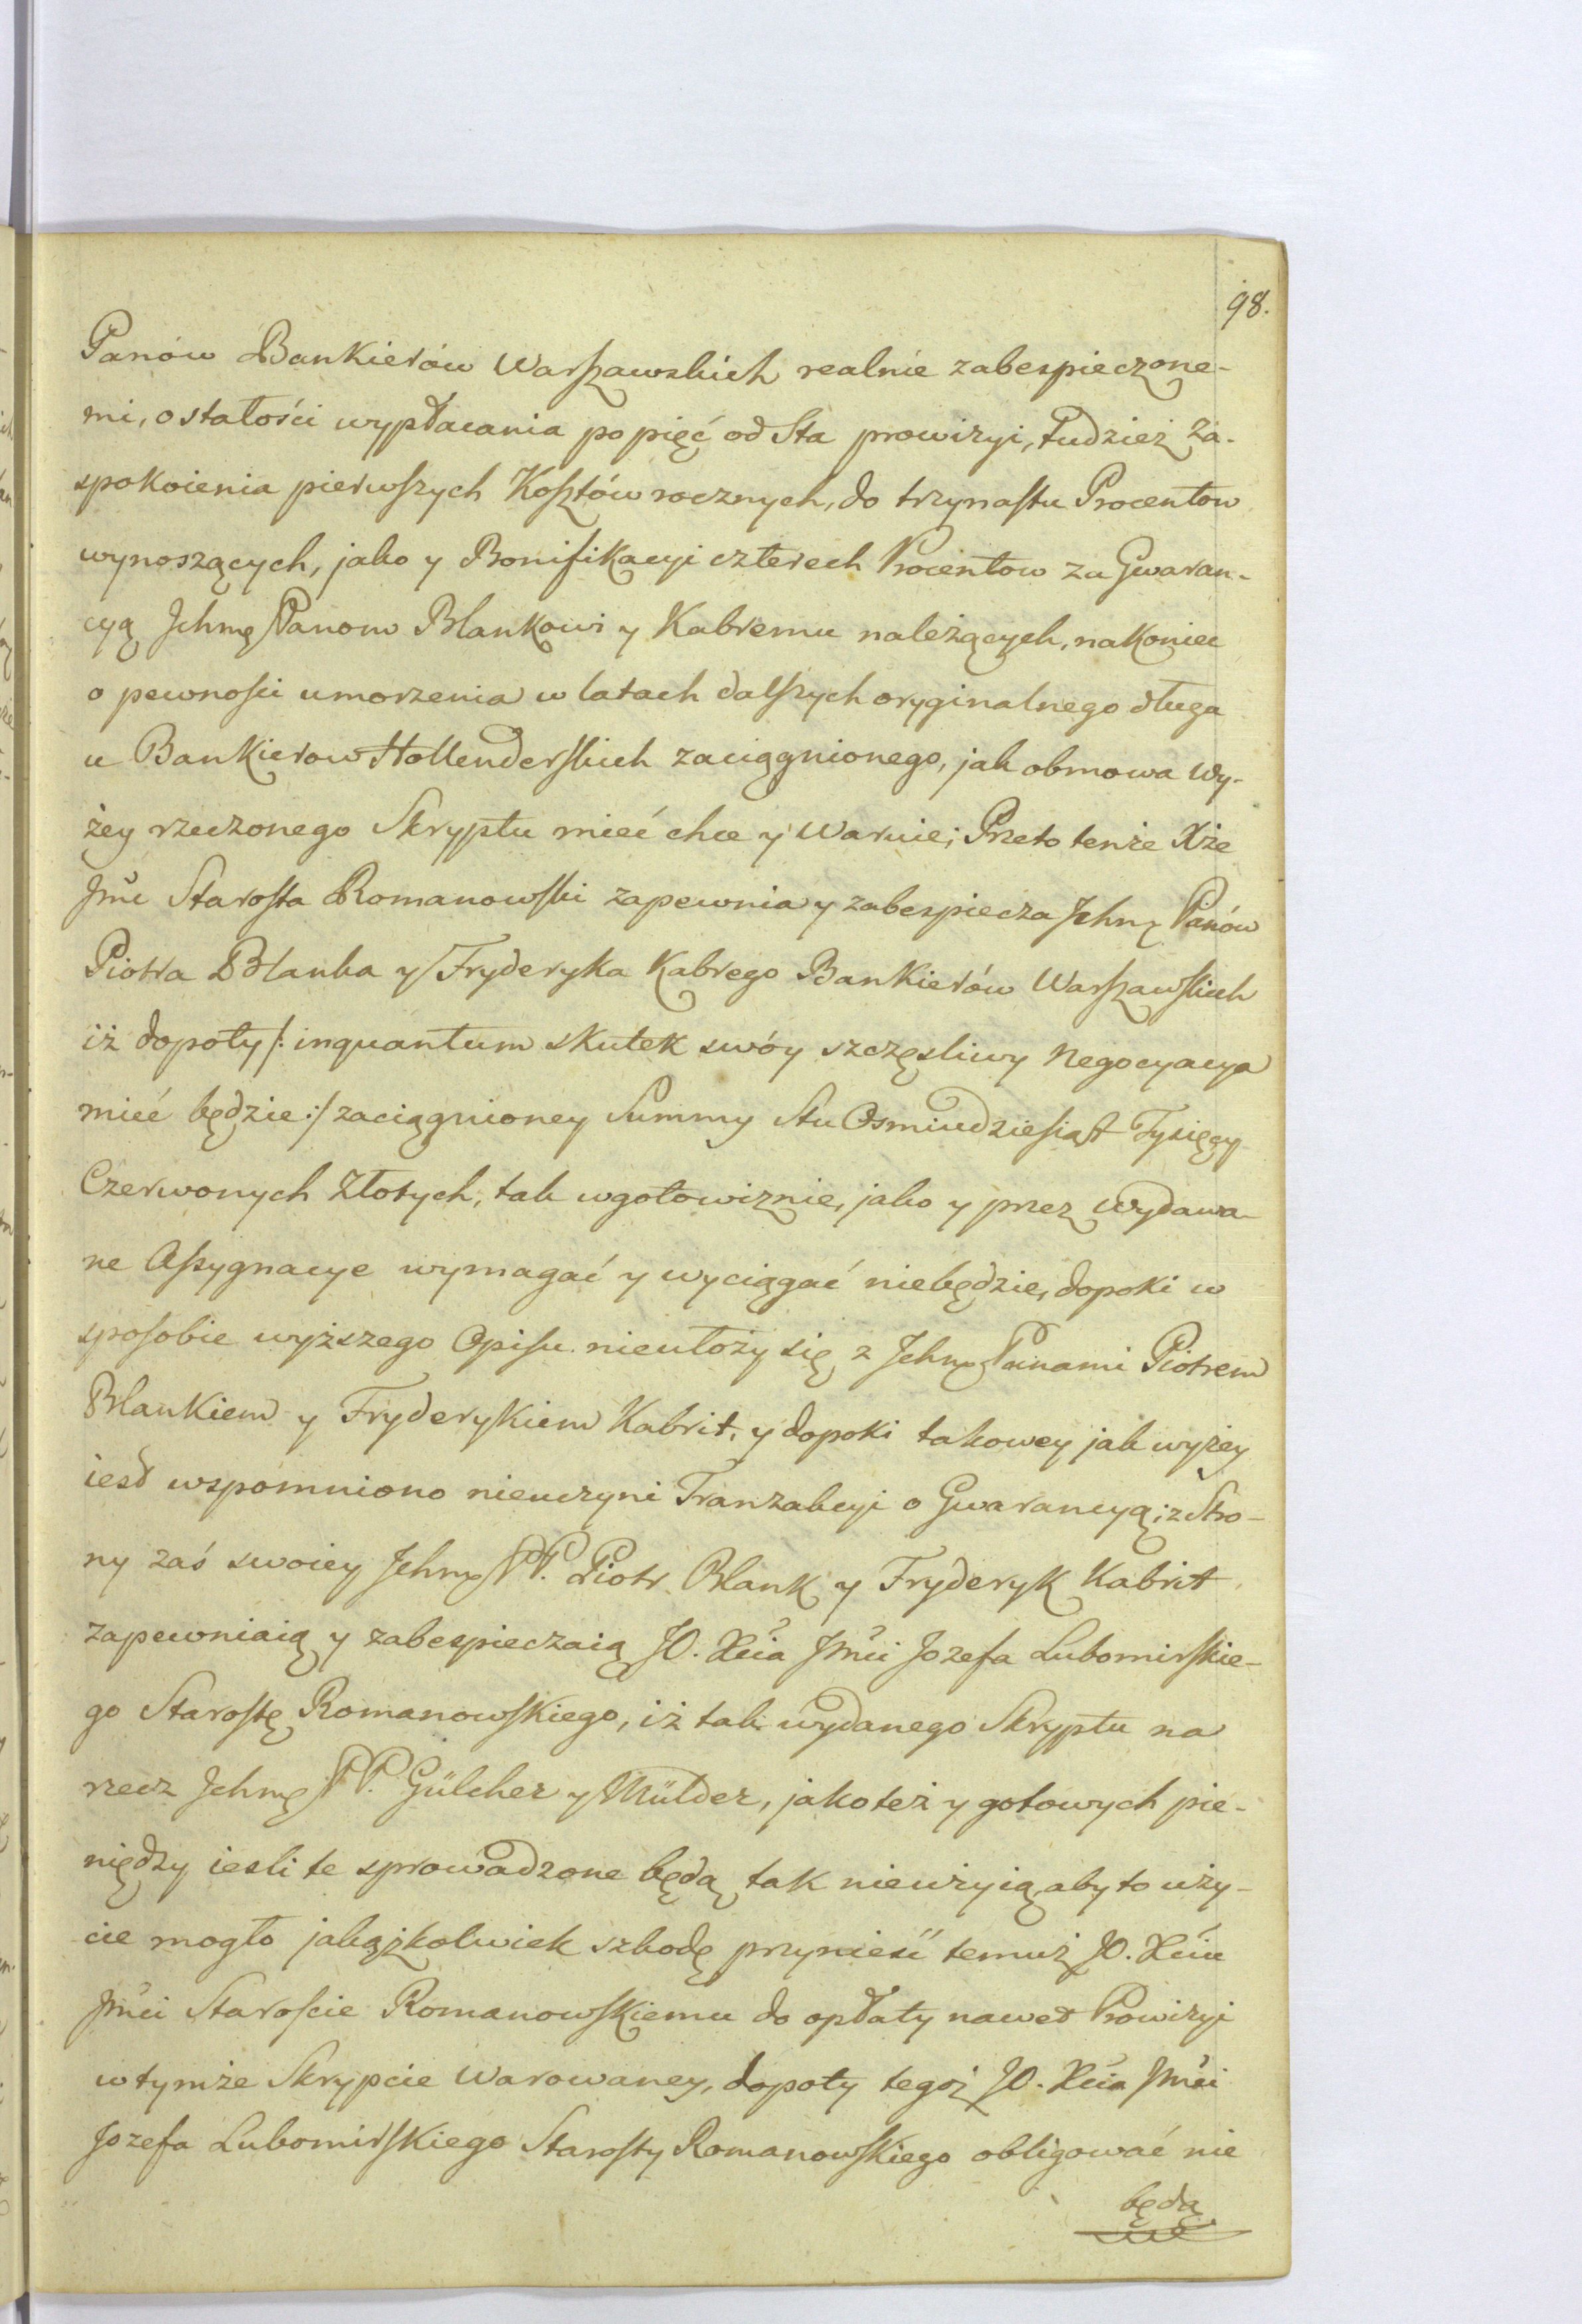 98.
Panów Bankierów Warszawskich realnie zabespieczone-
mi, o stałości wypłacania po pięć od Sta prowizyi, tudzież za-
spokoienia pierwszych Kosztów rocznych, do trzynastu Procentow
wynoszących, jako y Bonifikacyi czterech Procentow za Gwaran-
cyą Jchmę Panom Blankowi y Kabremu należących, nakoniec
o pewności umorzenia w latach dalszych oryginalnego długu
u Bankierow Hollenderskich zaciągnionego, jak obmowa wy-
żey rzeczonego Skryptu mieć chce y waruie; Przeto tenże Xże
Jmć Starosta Romanowski zapewnia y zabespiecza Jchmę Panów
Piotra Blanka y Fryderyka Kabrego Bankierów Warszawskich
iż dopoty /: inquantum skutek swóy szczęsliwy Negocyacya
mieć będzie :/ zaciągnioney Summy Stu Osmiudziesiąt Tysięcy
Czerwonych Złotych, tak w gotowiznie, jako y przez wydawa-
ne Assygnacye wymagać y wyciągać niebędzie, dopoki w
sposobie wyższego Opisu nieułoży się z Jchmę Panami Piotrem
Blankiem y Fryderykiem Kabrit, y dopoki takowey jak wyżey
iest wspomniono nieuczyni Tranzakcyi o Gwarancyą; z Stro-
ny zaś swoiey Jchmę PP. Piotr Blank y Fryderyk Kabrit
zapewniaią y zabespieczaią JO. Xcia Jmci Jozefa Lubomirskie-
go Starostę Romanowskiego, iż tak wydanego Skryptu na
rzecz Jchmę PP. Gülcher y Mülder, jakoteż y gotowych pie-
niędzy iesli te sprowadzone będą tak nieużyią, aby to uży-
cie mogło jakążkolwiek szkodę przynieść temuż JO. Xciu
Jmci Staroscie Romanowskiemu do opłaty nawet Prowizyi
w tymże Skrypcie warowaney, dopoty tegoż JO. Xcia Jmci
Jozefa Lubomirskiego Starosty Romanowskiego obligować nie
będą